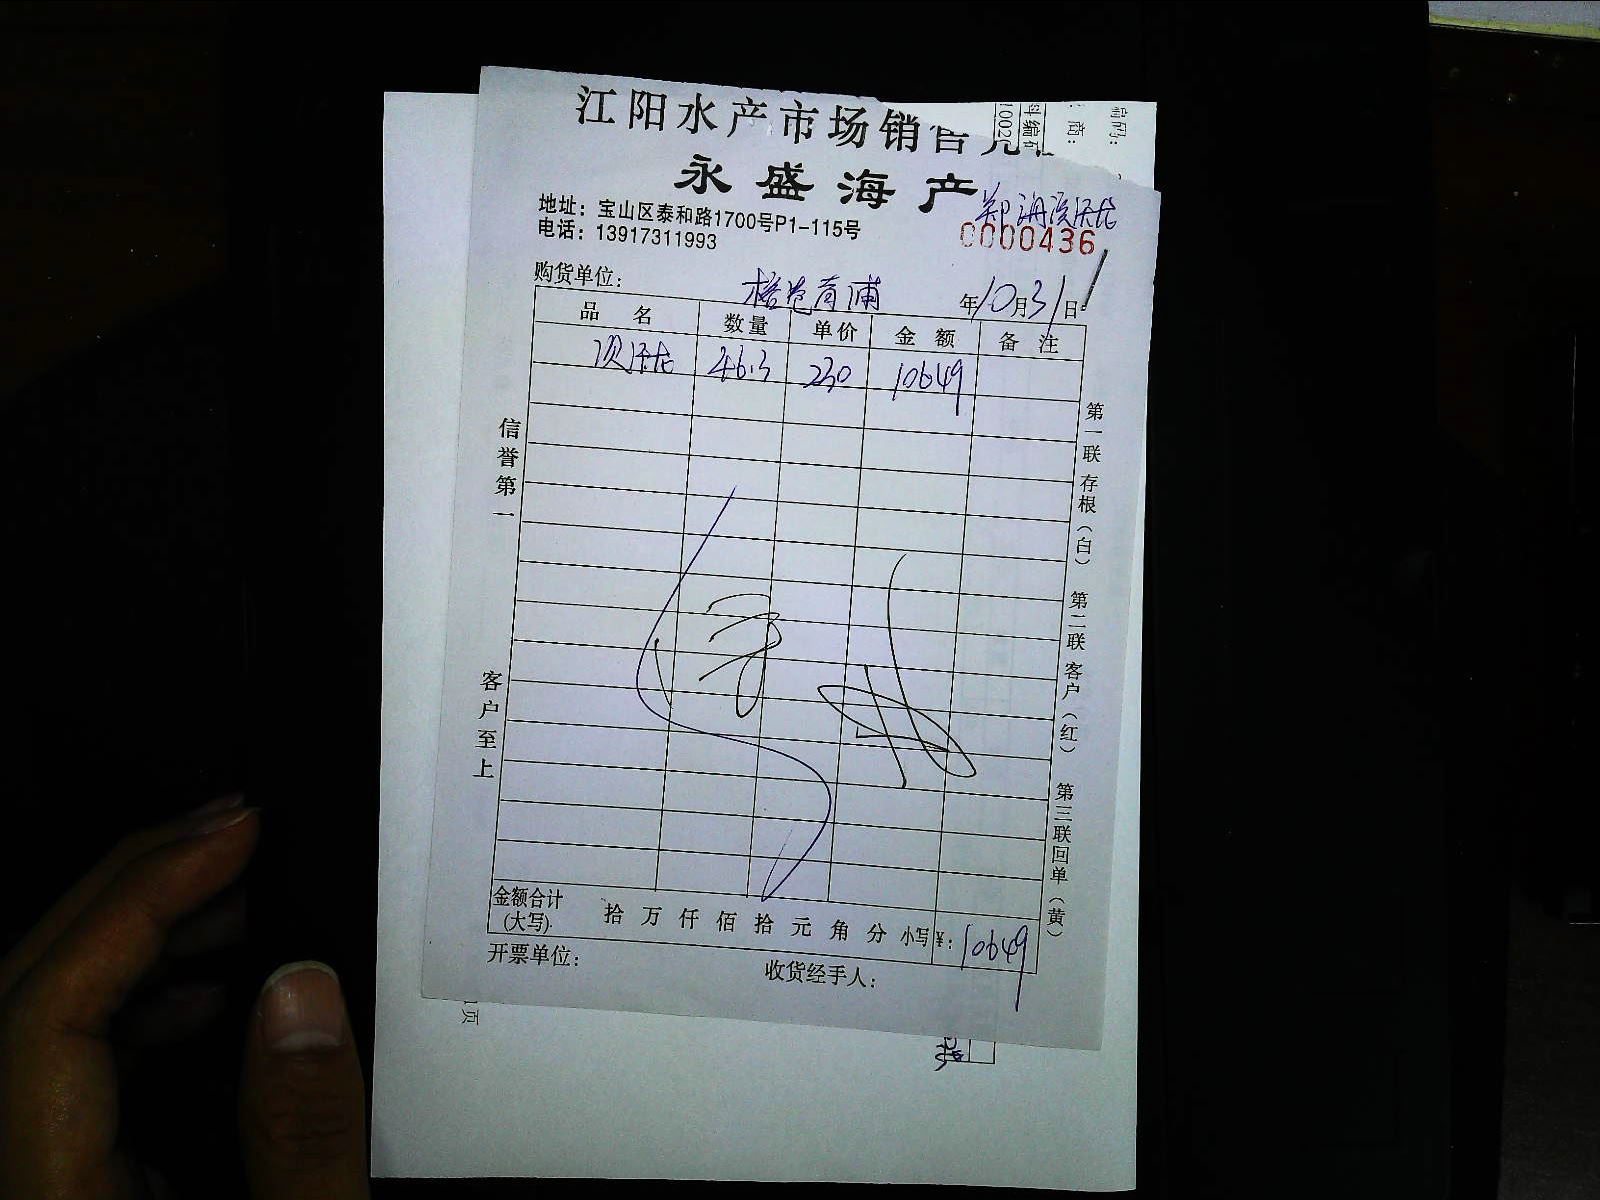 江阳水产市场销售凭证
永盛海产
地址：宝山区泰和路1700号P1-115号
电话：13917311993
0000436
购货单位：
年10月31日
品名 数量 单价 金额 备注
46.3 230 10649
信誉第一
客户至上
第一联 存根（白） 第二联 客户（红） 第三联 回单（黄）
金额合计（大写） 拾 万 仟 佰 拾 元 角 分 小写¥：10649
开票单位：
收货经手人：
编码：
商：
料编码
页